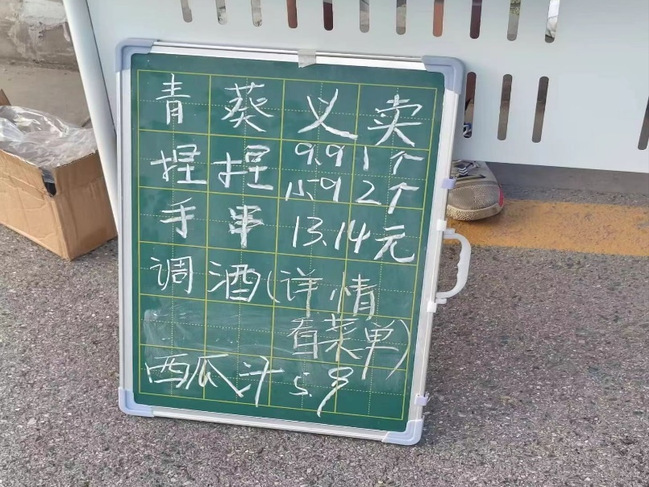 青葵义卖
捏捏 9.9 1个
15.9 2个
手串 13.14元
调酒(详情
看菜单)
西瓜汁 5.9